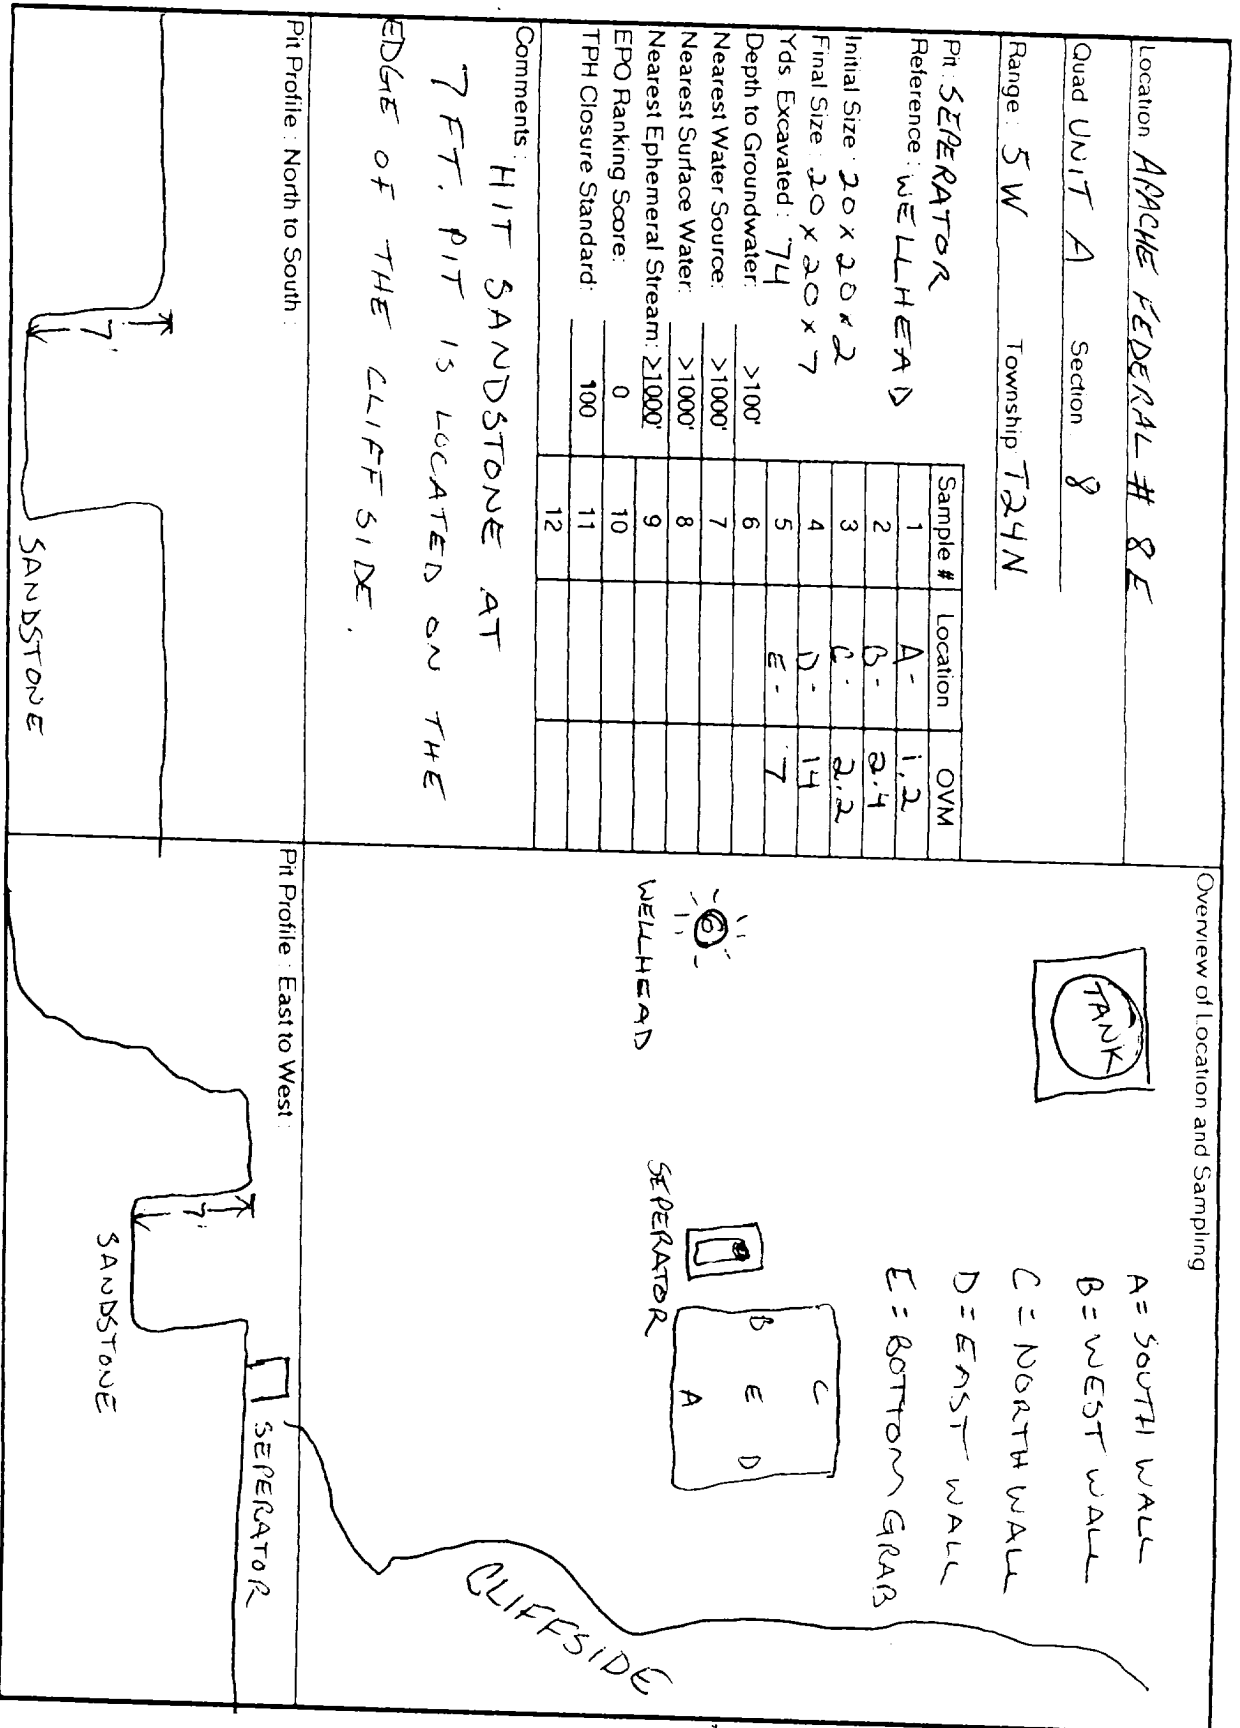 Location APACHE FEDERAL # 8 E
Quad UNIT A Section 8
Range: 5 W Township T24N
Pit: SEPERATOR
Reference: WELLHEAD
Initial Size: 20 x 20 x 2
Final Size: 20 x 20 x 7
Yds. Excavated: 74
Depth to Groundwater: >100'
Nearest Water Source: >1000'
Nearest Surface Water: >1000'
Nearest Ephemeral Stream: >1000'
EPO Ranking Score: 0
TPH Closure Standard: 100
Sample # Location OVM
1 A- 1.2
2 B- 2.4
3 C- 2.2
4 D- 14
5 E- 7
6
7
8
9
10
11
12
Comments: HIT SANDSTONE AT
7 FT. PIT IS LOCATED ON THE
EDGE OF THE CLIFF SIDE.
Pit Profile: North to South:
7'
SANDSTONE
Overview of Location and Sampling
A = SOUTH WALL
B = WEST WALL
C = NORTH WALL
D = EAST WALL
E = BOTTOM GRAB
TANK
WELLHEAD
SEPERATOR
C
B E D
A
CLIFFSIDE
Pit Profile: East to West:
7'
SEPERATOR
SANDSTONE